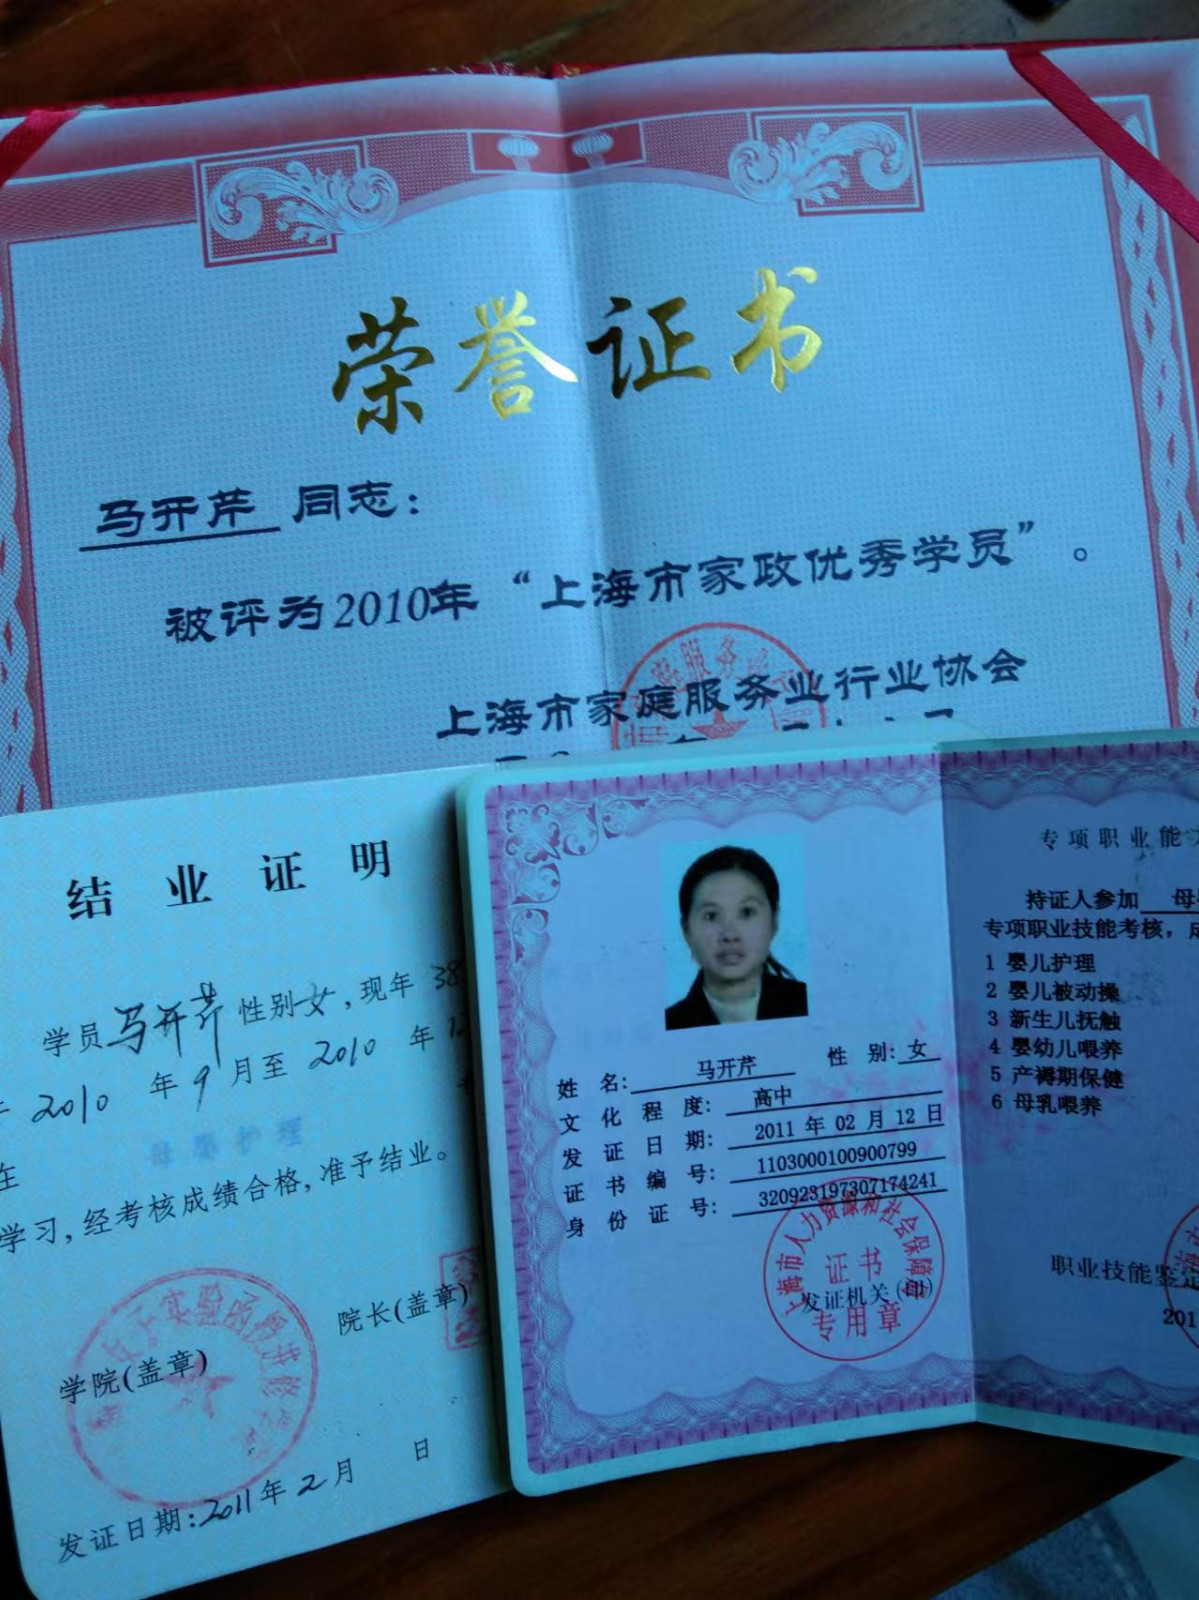 荣誉证书
马开芹 同志：
被评为2010年“上海市家政优秀学员”。
上海市家庭服务业行业协会
结业证明
学员马开芹性别女，现年38
2010 年9月至2010 年12
母婴护理
学习，经考核成绩合格，准予结业。
院长(盖章)
学院(盖章)
发证日期：2011年2月 日
姓 名： 马开芹 性 别：女
文 化 程 度： 高中
发 证 日 期： 2011 年 02 月 12 日
证 书 编 号： 1103000100900799
身 份 证 号： 320923197307174241
上海市人力资源和社会保障局
证书
发证机关(印)
专用章
专项职业能
持证人参加 母
专项职业技能考核，成
1 婴儿护理
2 婴儿被动操
3 新生儿抚触
4 婴幼儿喂养
5 产褥期保健
6 母乳喂养
职业技能鉴定
201